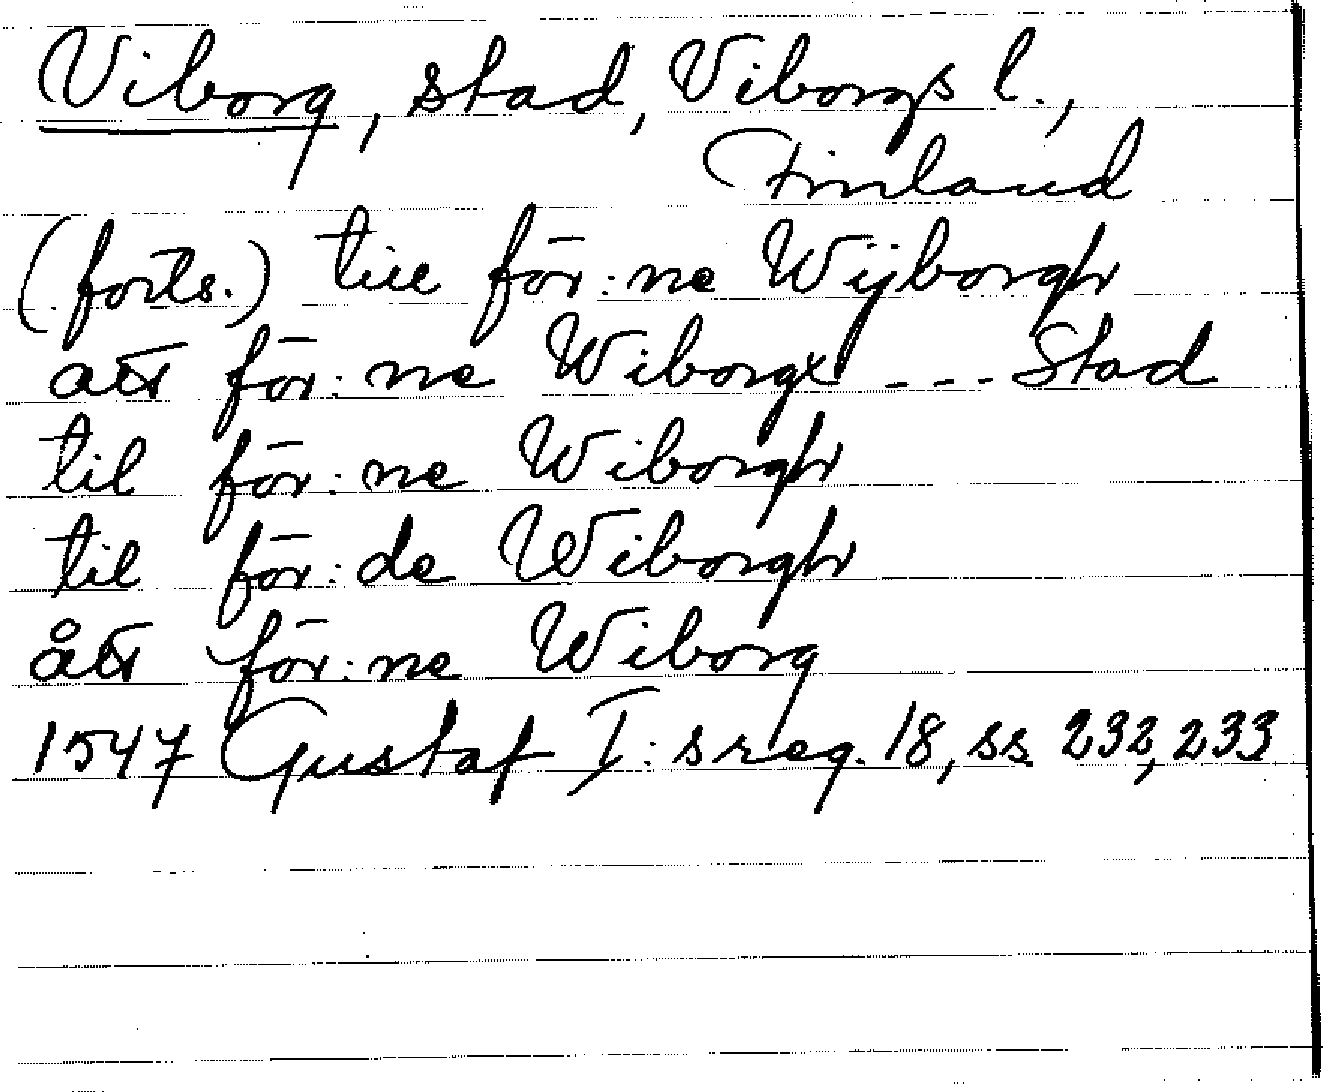 Viborg, stad, Viborgs l.,
Finland
(forts.) till för:ne Wijborgh
att för:ne Wiborgx - - - Stad
til för:ne Wiborgh
til för:de Wiborgh
ått för:ne Wiborg
1547 Gustaf I:s reg. 18, ss. 232, 233